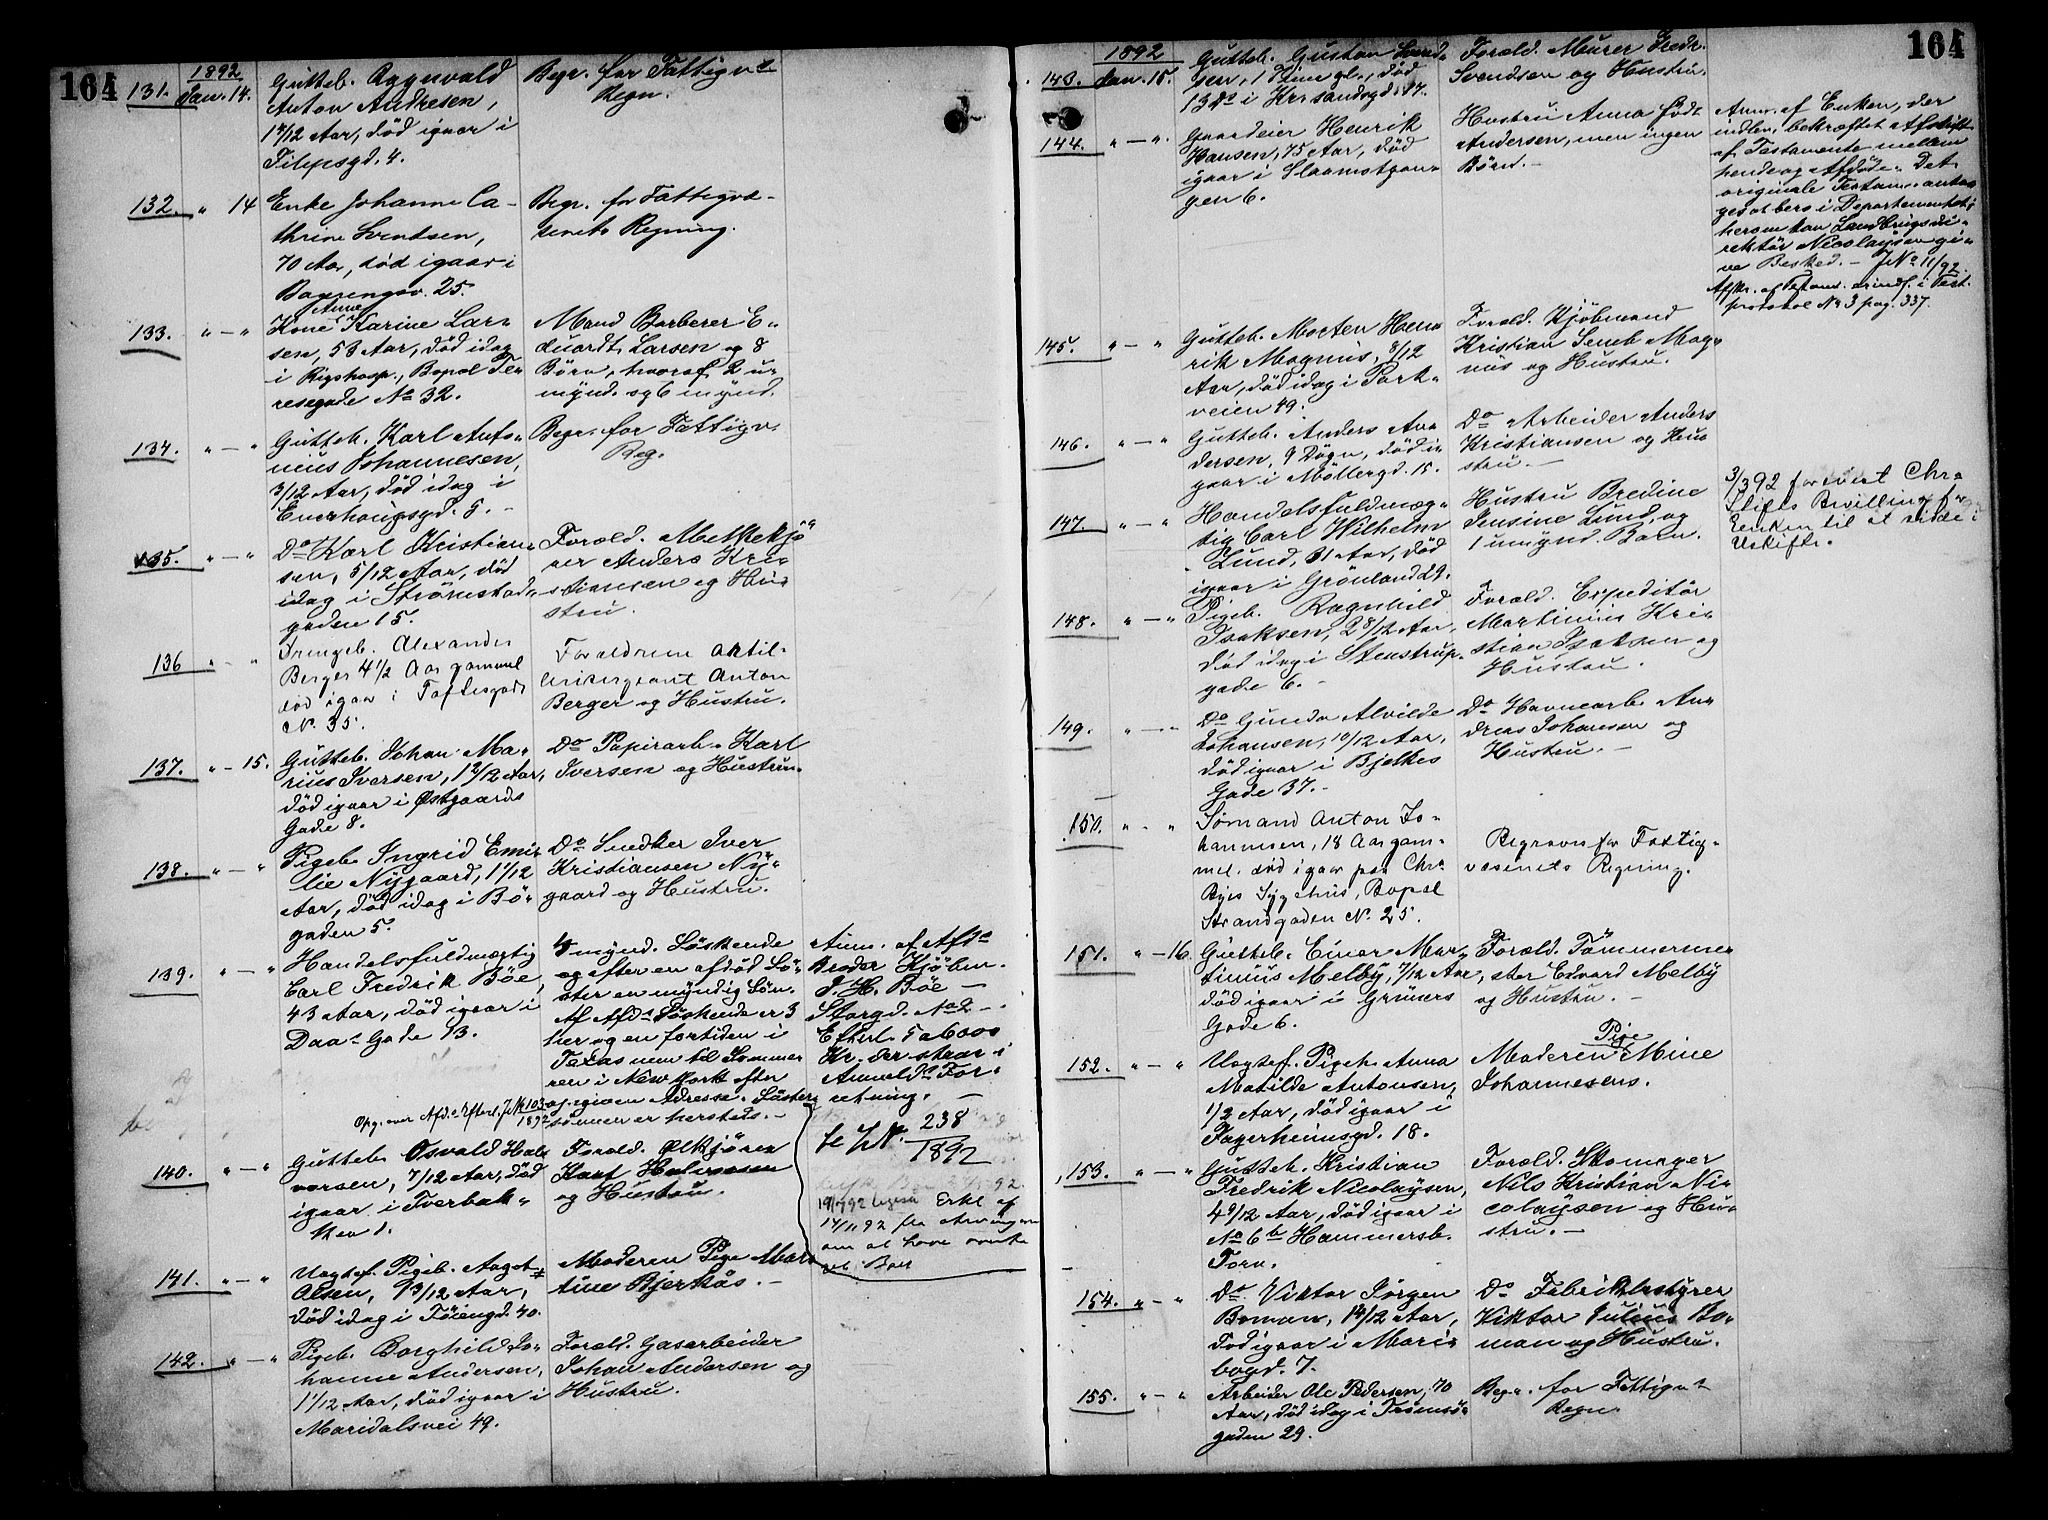 164
1892
131. Jan. 14.
Gutteb. Ragnvald
Anton Andresen,
død igaar i
Filipsgd. 4.
Begr. for Fattigv.
Regn.
132. " 14
Enke Johanne Ca-
thrine Svendsen,
70 Aar, død igaar i
25.
Begr. for Fattigvæ-
senets Regning.
133. " — "
Anne
Kone Karine Lar-
sen, 53 Aar, død idag
i Rigshosp., Bopæl The-
resegade No 32.
Mand Barberer E-
duardt Larsen og 8
Börn, hvoraf 2 u-
mynd. og 6 mynd.
134. " — "
Gutteb. Karl Anto-
nius Johannesen,
3/12 Aar, død idag i
Enerhaugsgd. 5. -
Begr. for Fattigv.
Reg.
135. " — "
Do Karl Kristian-
sen, 5/12 Aar, död
idag i Strömstad-
gaden 15.
Foræld. Melkekjö-
rer Anders Kri-
stiansen og Hu-
stru.
136 " — "
Drengeb. Alexander
Berger 4 1/2 Aar gammel
død igaar i Toftesgade
No. 35.
Forældrene Artil-
lerisergeant Anton
Berger og Hustru.
137. " — 15.
Gutteb. Johan Ma-
rius Iversen, 1 9/12 Aar,
död igaar i Østgaards
Gade 8.
Do Papirarb. Karl
Iversen og Hustru.
138. " — "
Pigeb. Ingrid Emi-
lie Nygaard, 11/12
Aar, død idag i Bö-
gaden 5.
Do Snedker Iver
Kristiansen Ny-
gaard og Hustru.
139. " — "
Handelsfuldmægtig
Carl Fredrik Böe,
43 Aar, död igaar i
Daas Gade 13.
Opg. over Afd. Efterl. J No 103
1892
4 mynd. Söskende
og efter en afdöd Sö-
ster en myndig Sön.
Af Afds Söskende er 3
her og en fortiden i
Texas men til Sommer
ren i New York efter
opgiven Adresse. Söster-
sönnen er hersteds. -
Anm. af Afds
Broder Kjöbm.
J. H. Böe —
Storgd. No 2 —.
Efterl. 5 a 6000
Kr. der staar i
Anmelds For-
retning. -
Se J No. 238
1892
Erkl af
14/11 92 fra Arvingerne
om at have overta-
get Boet
140. " — "
Gutteb. Osvald Hal-
vorsen, 7/12 Aar, död
igaar i Tverbak-
ken 1.
Foræld. Ølkjörer
Karl Halvorsen
og Hustru.
141. " — "
Uægtef. Pigeb. Aagot
Olsen, 1 3/12 Aar,
död idag i Töiengd. 40.
Moderen Pige Mar-
tine Bjerkås. -
142. " — "
Pigeb. Borghild Jo-
hanne Andersen,
1 1/12 Aar, död igaar i
Maridalsvei 49.
Foræld. Gasarbeider
Johan Andersen og
Hustru.
164
1892
143. Jan. 15.
Gutteb. Gustav Svend-
sen, 1 Time gl., död
13 Ds i Kr. sandsgd. 17.
Foræld. Murer Fredr.
Svendsen og Hustru.
144. " — "
Gaardeier Henrik
Hansen, 75 Aar, död
igaar i
gen 6.
Hustru Anna född
Andersen, men ingen
Börn. -
Anm. af Enken, der
indlev. bekræftet Afskrift
af Testamente mellem
hende og Afdöde. Det
originale Testam. antag
gedat bero i Departementet,
herom kan Landbrugsdi-
rektör Nicolaysen gi-
ve Besked. - J No 11/92
Afskr. af Testam. er indf. i Test.
protokol No 3 pag. 337.
145. " — "
Gutteb. Morten Hen-
rik Magnus, 8/12
Aar, död idag i Park-
veien 49.
Foræld. Kjöbmand
Kristian Seneb Mag-
nus og Hustru.
146. " — "
Gutteb. Anders An-
dersen, 9 Dögn, död i-
gaar i Möllergd. 15.
Do Arbeider Anders
Kristiansen og Hu-
stru. -
147. " — "
Handelsfuldmæg-
tig Carl Wilhelm
Lund, 31 Aar, död
igaar i Grönland 29.
Hustru Bredine
Jensine Lund, og
1 umynd. Barn.
3/3 92 forevist Chr.a
Stifts Bevilling for
Enken til at sidde i
Uskifte.
148. " — "
Pigeb. Ragnhild
Isaksen, 2 8/12 Aar,
död idag i Stenstrup-
gade 6. -
Foræld. Expeditör
Martinius Kri-
stian Isaksen og
Hustru.
149. " — "
Do Gunda Alvilde
Johansen, 10/12 Aar,
död igaar i Bjelkes
Gade 37. -
Do Havnearb. An-
dreas Johansen og
Hustru. -
150. " - "
Sömand Anton Jo-
hannesen, 18 Aar gam-
mel. död igaar paa Chr.a
Byes Sygehus, Bopæl
Strandgaden No. 25.
Begraves for Fattig-
væsenets Regning.
151. " — 16.
Gutteb. Einar Mar-
tinius Melby, 7/12 Aar,
död igaar i Grüners
Gade 6.
Foræld. Tömmerme-
ster Edvard Melby
og Hustru. -
152. " — "
Uægtef. Pigeb. Anna
Matilde Antonsen,
1/2 Aar, död igaar i
Fagerheimsgd. 18.
Pige
Moderen Mine
Johannesens.
153. " — "
Gutteb. Kristian
Fredrik Nicolaysen,
4 9/12 Aar, död igaar i
No 6 b Hammersb.
Torv.
Foræld. Skomager
Nils Kristian Ni-
colaysen og Hu-
stru. -
154. " — "
Do Viktor Jörgen
Boman, 14/12 Aar,
död igaar i Mari-
bogd. 7.
Do Fabrikbestyrer
Viktor Julius Bo-
man og Hustru.
155. " — "
Arbeider Ole Pedersen, 70
Aar, död idag i Tromsö-
gaden 29.
Begr. for Fattigv.
Regn.